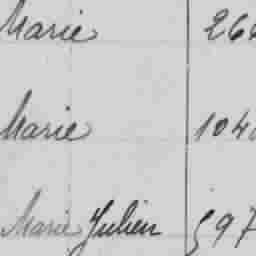 Marie 266
Marie 104
Marie Julien 597